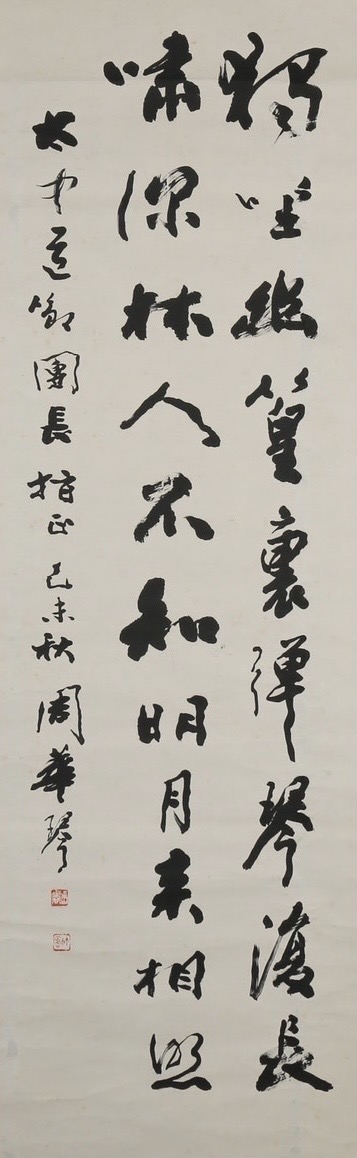 獨坐幽篁裏彈琴復長
嘯深林人不知明月來相照
太中道卿團長指正己未秋周華琴